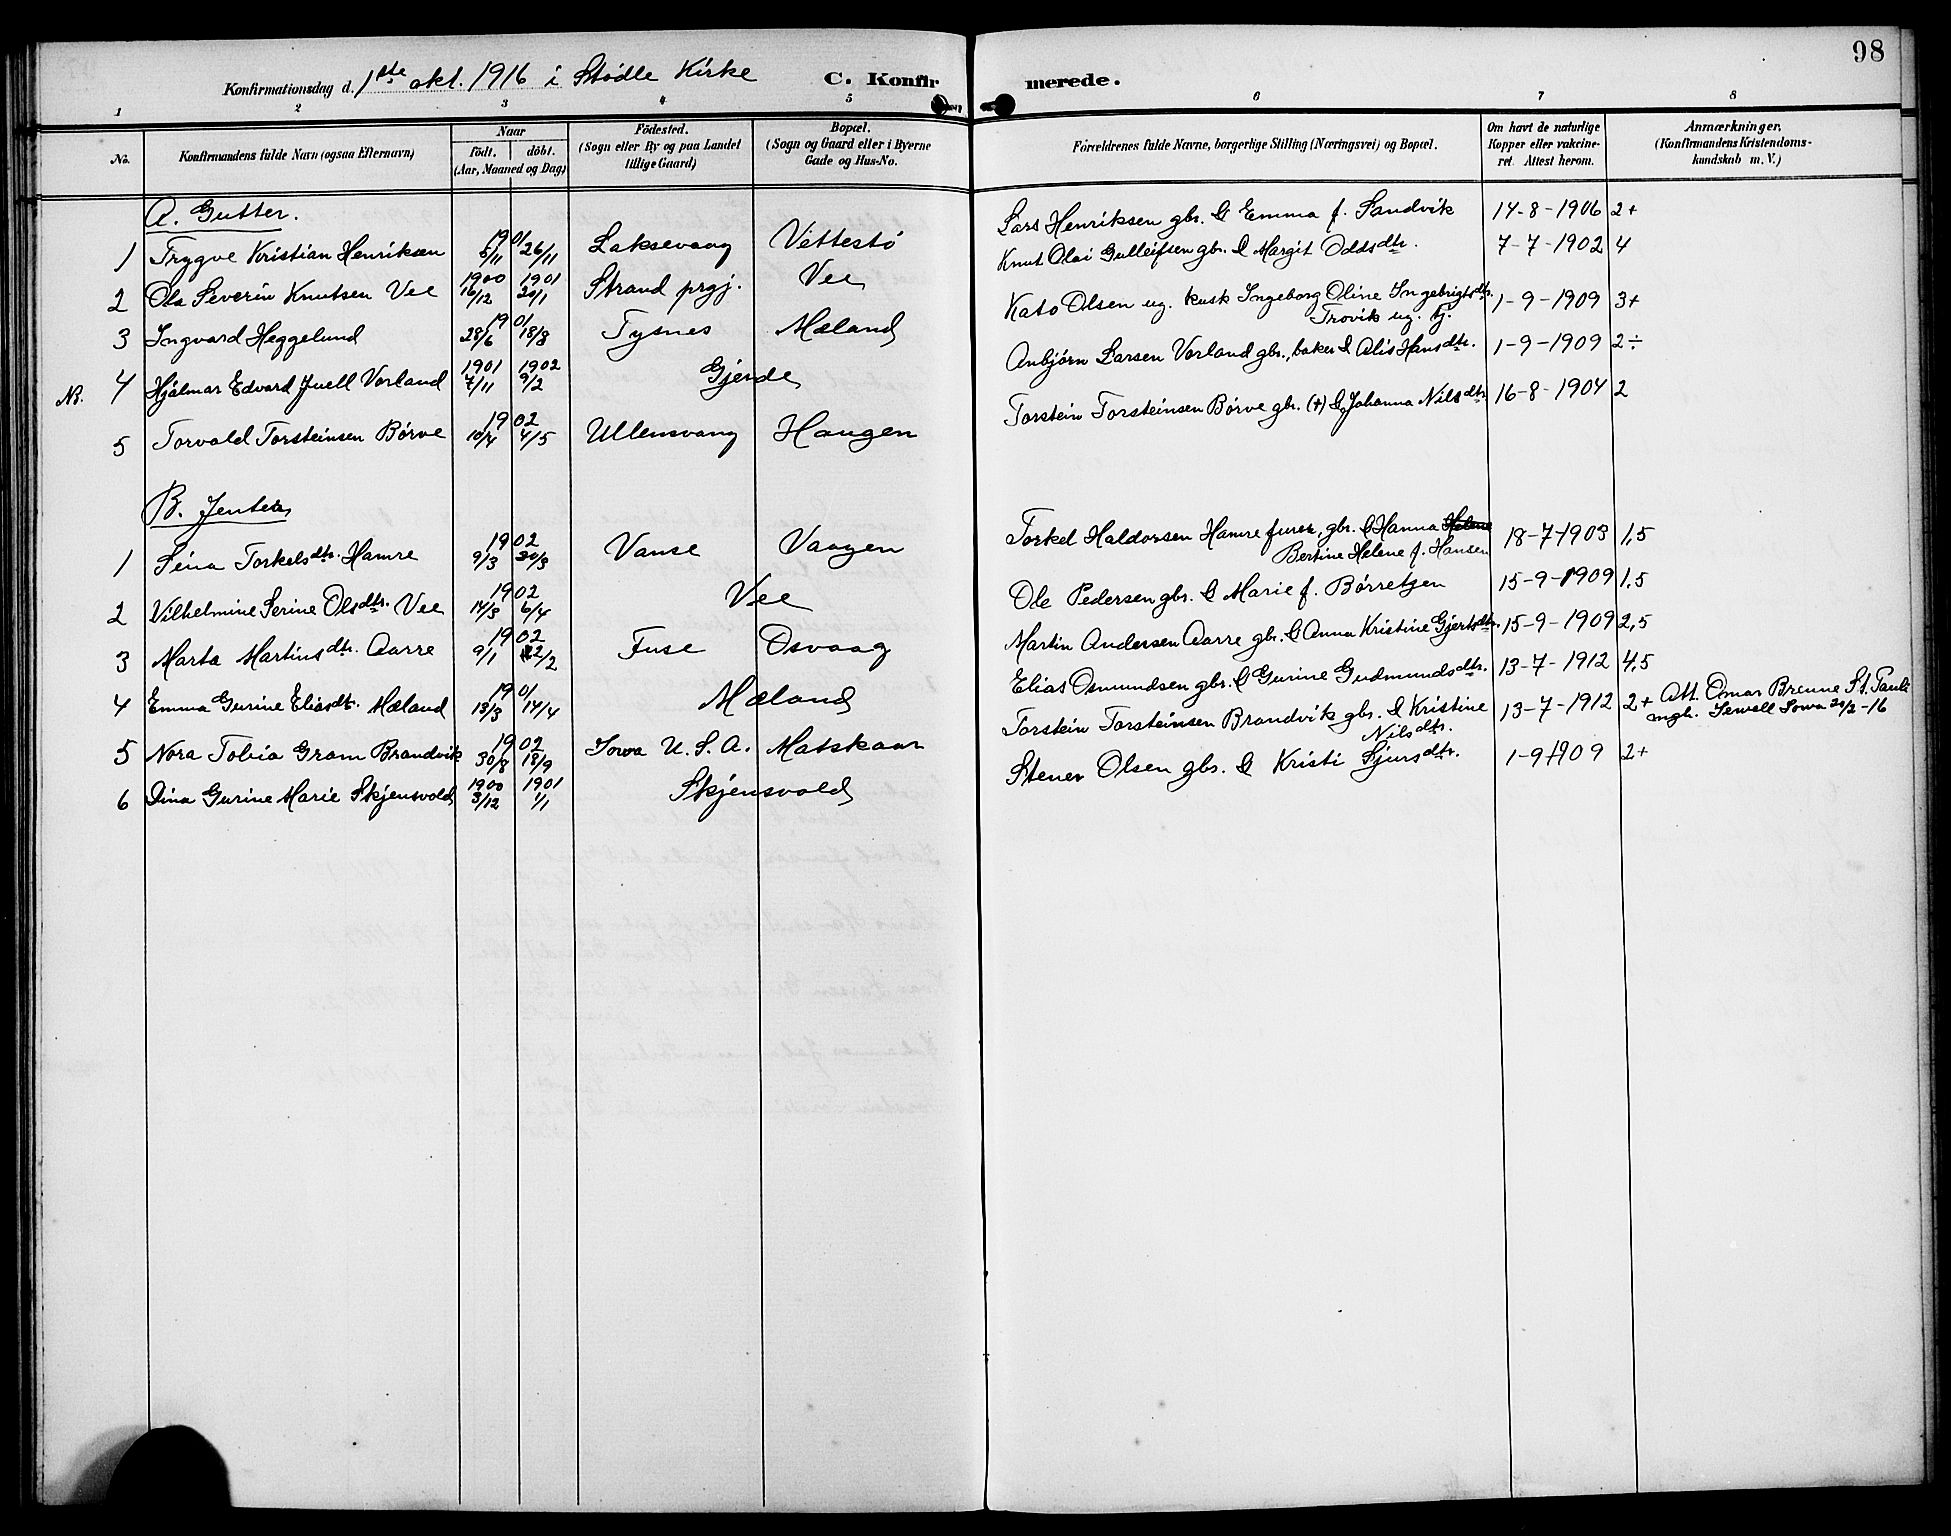 98
Konfirmationsdag d. 1ste okt. 1916 i Stødle Kirke C. Konfirmerede.
1 2 3 4 5 6 7 8
No. Konfirmandens fulde Navn (ogsaa Efternavn) Naar født. døbt. (Aar, Maaned og Dag) Fødested. (Sogn eller By og paa Landet tillige Gaard) Bopæl. (Sogn og Gaard eller i Byerne Gade og Hus-No. Forældrenes fulde Navne, borgerlige Stilling (Næringsvei) og Bopæl. Om havt de naturlige Kopper eller vakcineret. Attest herom. Anmærkninger. (Konfirmandens Kristendomskundskab m. V.)
A. Gutter.
1 Trygve Kristian Henriksen 1901 6/11 26/11 Laksevaag Vettestø Lars Henriksen gbr. & Emma f. Sandvik 14-8-1906 2+
2 Ola Severin Knutsen Vee 1900 16/12 1901 20/1 Strand prgj. Vee Knut Olai Gulleifsen gbr. & Margit Oddsdtr. 7-7-1902 4
3 Ingvard Heggelund 1901 28/6 18/8 Tysnes Mæland Kato Olsen ug. kusk Ingeborg Oline Ingebrigtsdtr. Trovik ug. tj. 1-9-1909 3+
N.B. 4 Hjalmar Edvard Juell Vorland 1901 7/11 1902 9/2 Gjerde Anbjørn Larsen Vorland gbr., baker & Alis Hansdtr. 1-9-1909 2÷
5 Torvald Torsteinsen Børve 1902 10/4 4/5 Ullensvang Haugen Torstein Torsteinsen Børve gbr. (+) & Johanna Nilsdtr. 16-8-1904 2
B. Jenter
1 Sina Torkelsdtr. Hamre 1902 9/3 30/3 Vanse Vaagen Torkel Haldorsen Hamre furer, gbr. & Hanna Helene Bertine Helene f. Hansen 18-7-1903 1,5
2 Vilhelmine Serine Olsdtr. Vee 1902 14/3 6/4 Vee Ole Pedersen gbr. & Marie f. Børretzen 15-9-1909 1,5
3 Marta Martinsdtr. Aarre 1902 9/1 22/2 Fuse Osvaag Martin Andersen Aarre gbr. & Anna Kristine Gjertsdtr. 15-9-1909 2,5
4 Emma Gurine Eliasdtr. Mæland 1901 13/3 14/4 Mæland Elias Osmundsen gbr. & Gurine Gudmundsdtr. 13-7-1912 4,5
5 Nora Tobia Gram Brandvik 1902 30/8 18/9 Iowa U.S.A. Matskaar Torstein Torsteinsen Brandvik gbr. & Kristine Nilsdtr. 13-7-1912 2+ Att. Omar Brenne St. Pauls mgh. Jewell Iowa 20/2-16
6 Dina Gurine Marie Skjensvold 1900 3/12 1901 1/1 Skjensvold Stener Olsen gbr. & Kristi Sjursdtr. 1-9-1909 2+